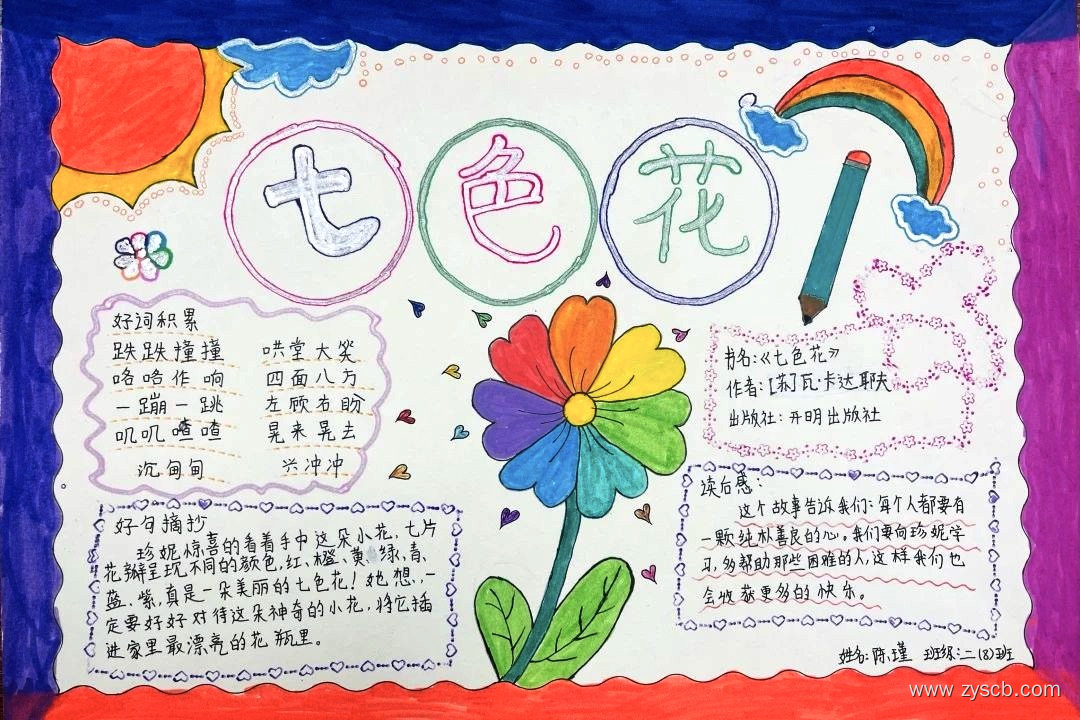 七色花
好词积累
跌跌撞撞 哄堂大笑
咯咯作响 四面八方
一蹦一跳 左顾右盼
叽叽喳喳 晃来晃去
沉甸甸 兴冲冲
书名:《七色花》
作者:[苏]瓦·卡达耶夫
出版社:开明出版社
好句摘抄
珍妮惊喜的看着手中这朵小花,七片
花瓣呈现不同的颜色,红、橙、黄、绿、青、
蓝、紫,真是一朵美丽的七色花!她想,一
定要好好对待这朵神奇的小花,将它插
进家里最漂亮的花瓶里。
读后感:
这个故事告诉我们:每个人都要有
一颗纯朴善良的心。我们要向珍妮学
习,多帮助那些困难的人,这样我们也
会收获更多的快乐。
姓名:陈瑾 班级:二(8)班
www.zyscb.com